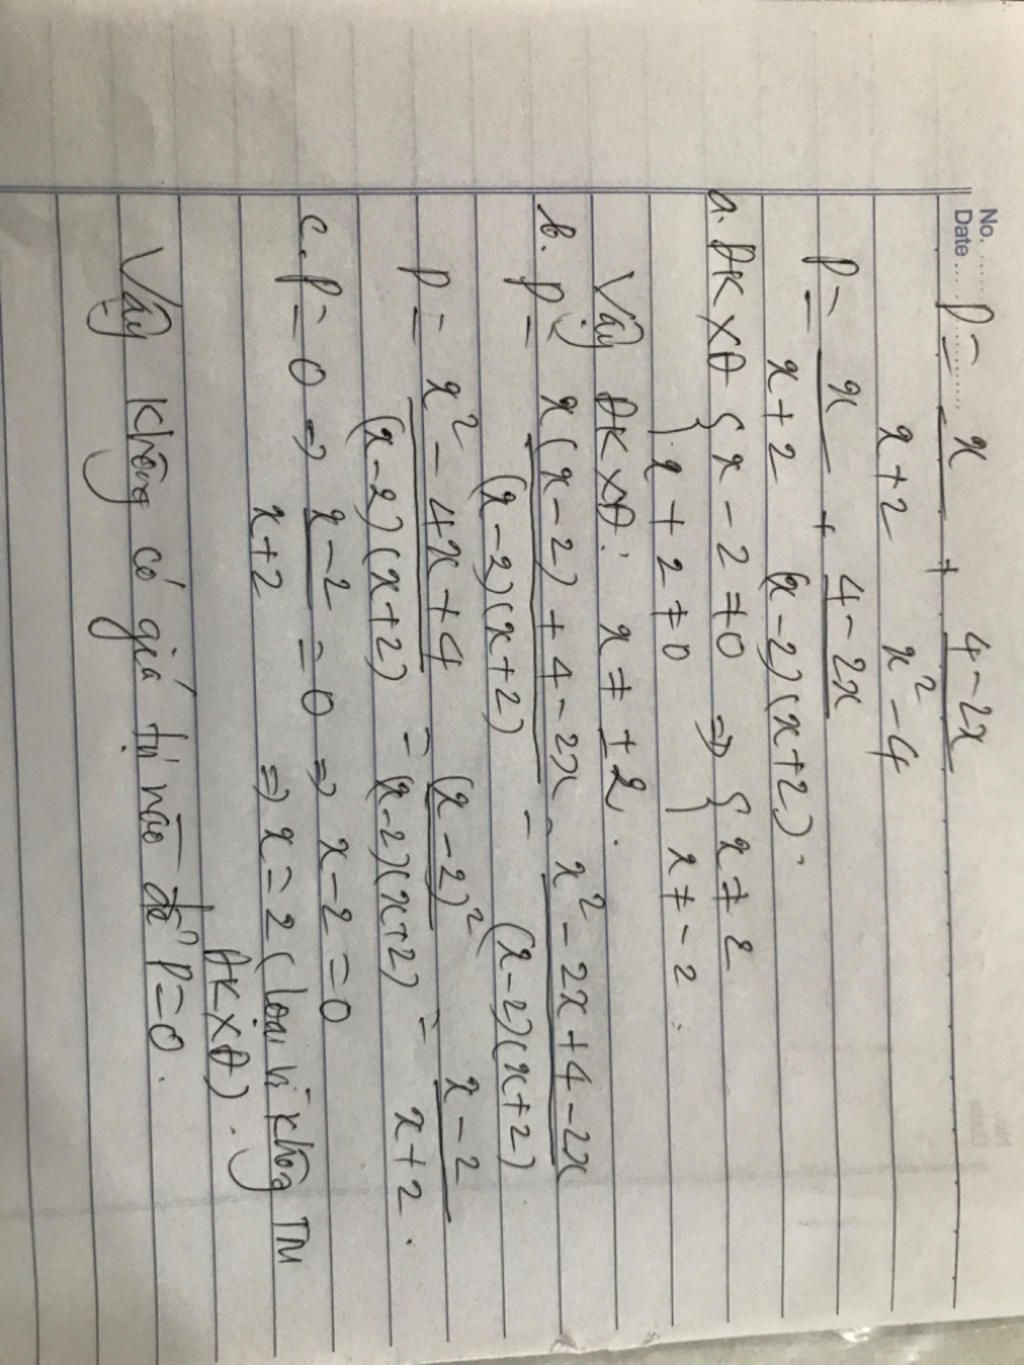 No. ........
Date ........
P = x/(x+2) + (4-2x)/(x²-4)
P = x/(x+2) + (4-2x)/((x-2)(x+2)).
a. ĐKXĐ { x-2 ≠ 0 ⇒ { x ≠ 2
x+2 ≠ 0 x ≠ -2.
Vậy ĐKXĐ: x ≠ ±2.
b. P = (x(x-2)+4-2x)/((x-2)(x+2)) = (x²-2x+4-2x)/((x-2)(x+2))
P = (x²-4x+4)/((x-2)(x+2)) = (x-2)²/((x-2)(x+2)) = (x-2)/(x+2).
c. P=0 ⇒ (x-2)/(x+2) = 0 ⇒ x-2=0
⇒ x=2 (loại vì không TM
ĐKXĐ).
Vậy không có giá trị nào để P=0.